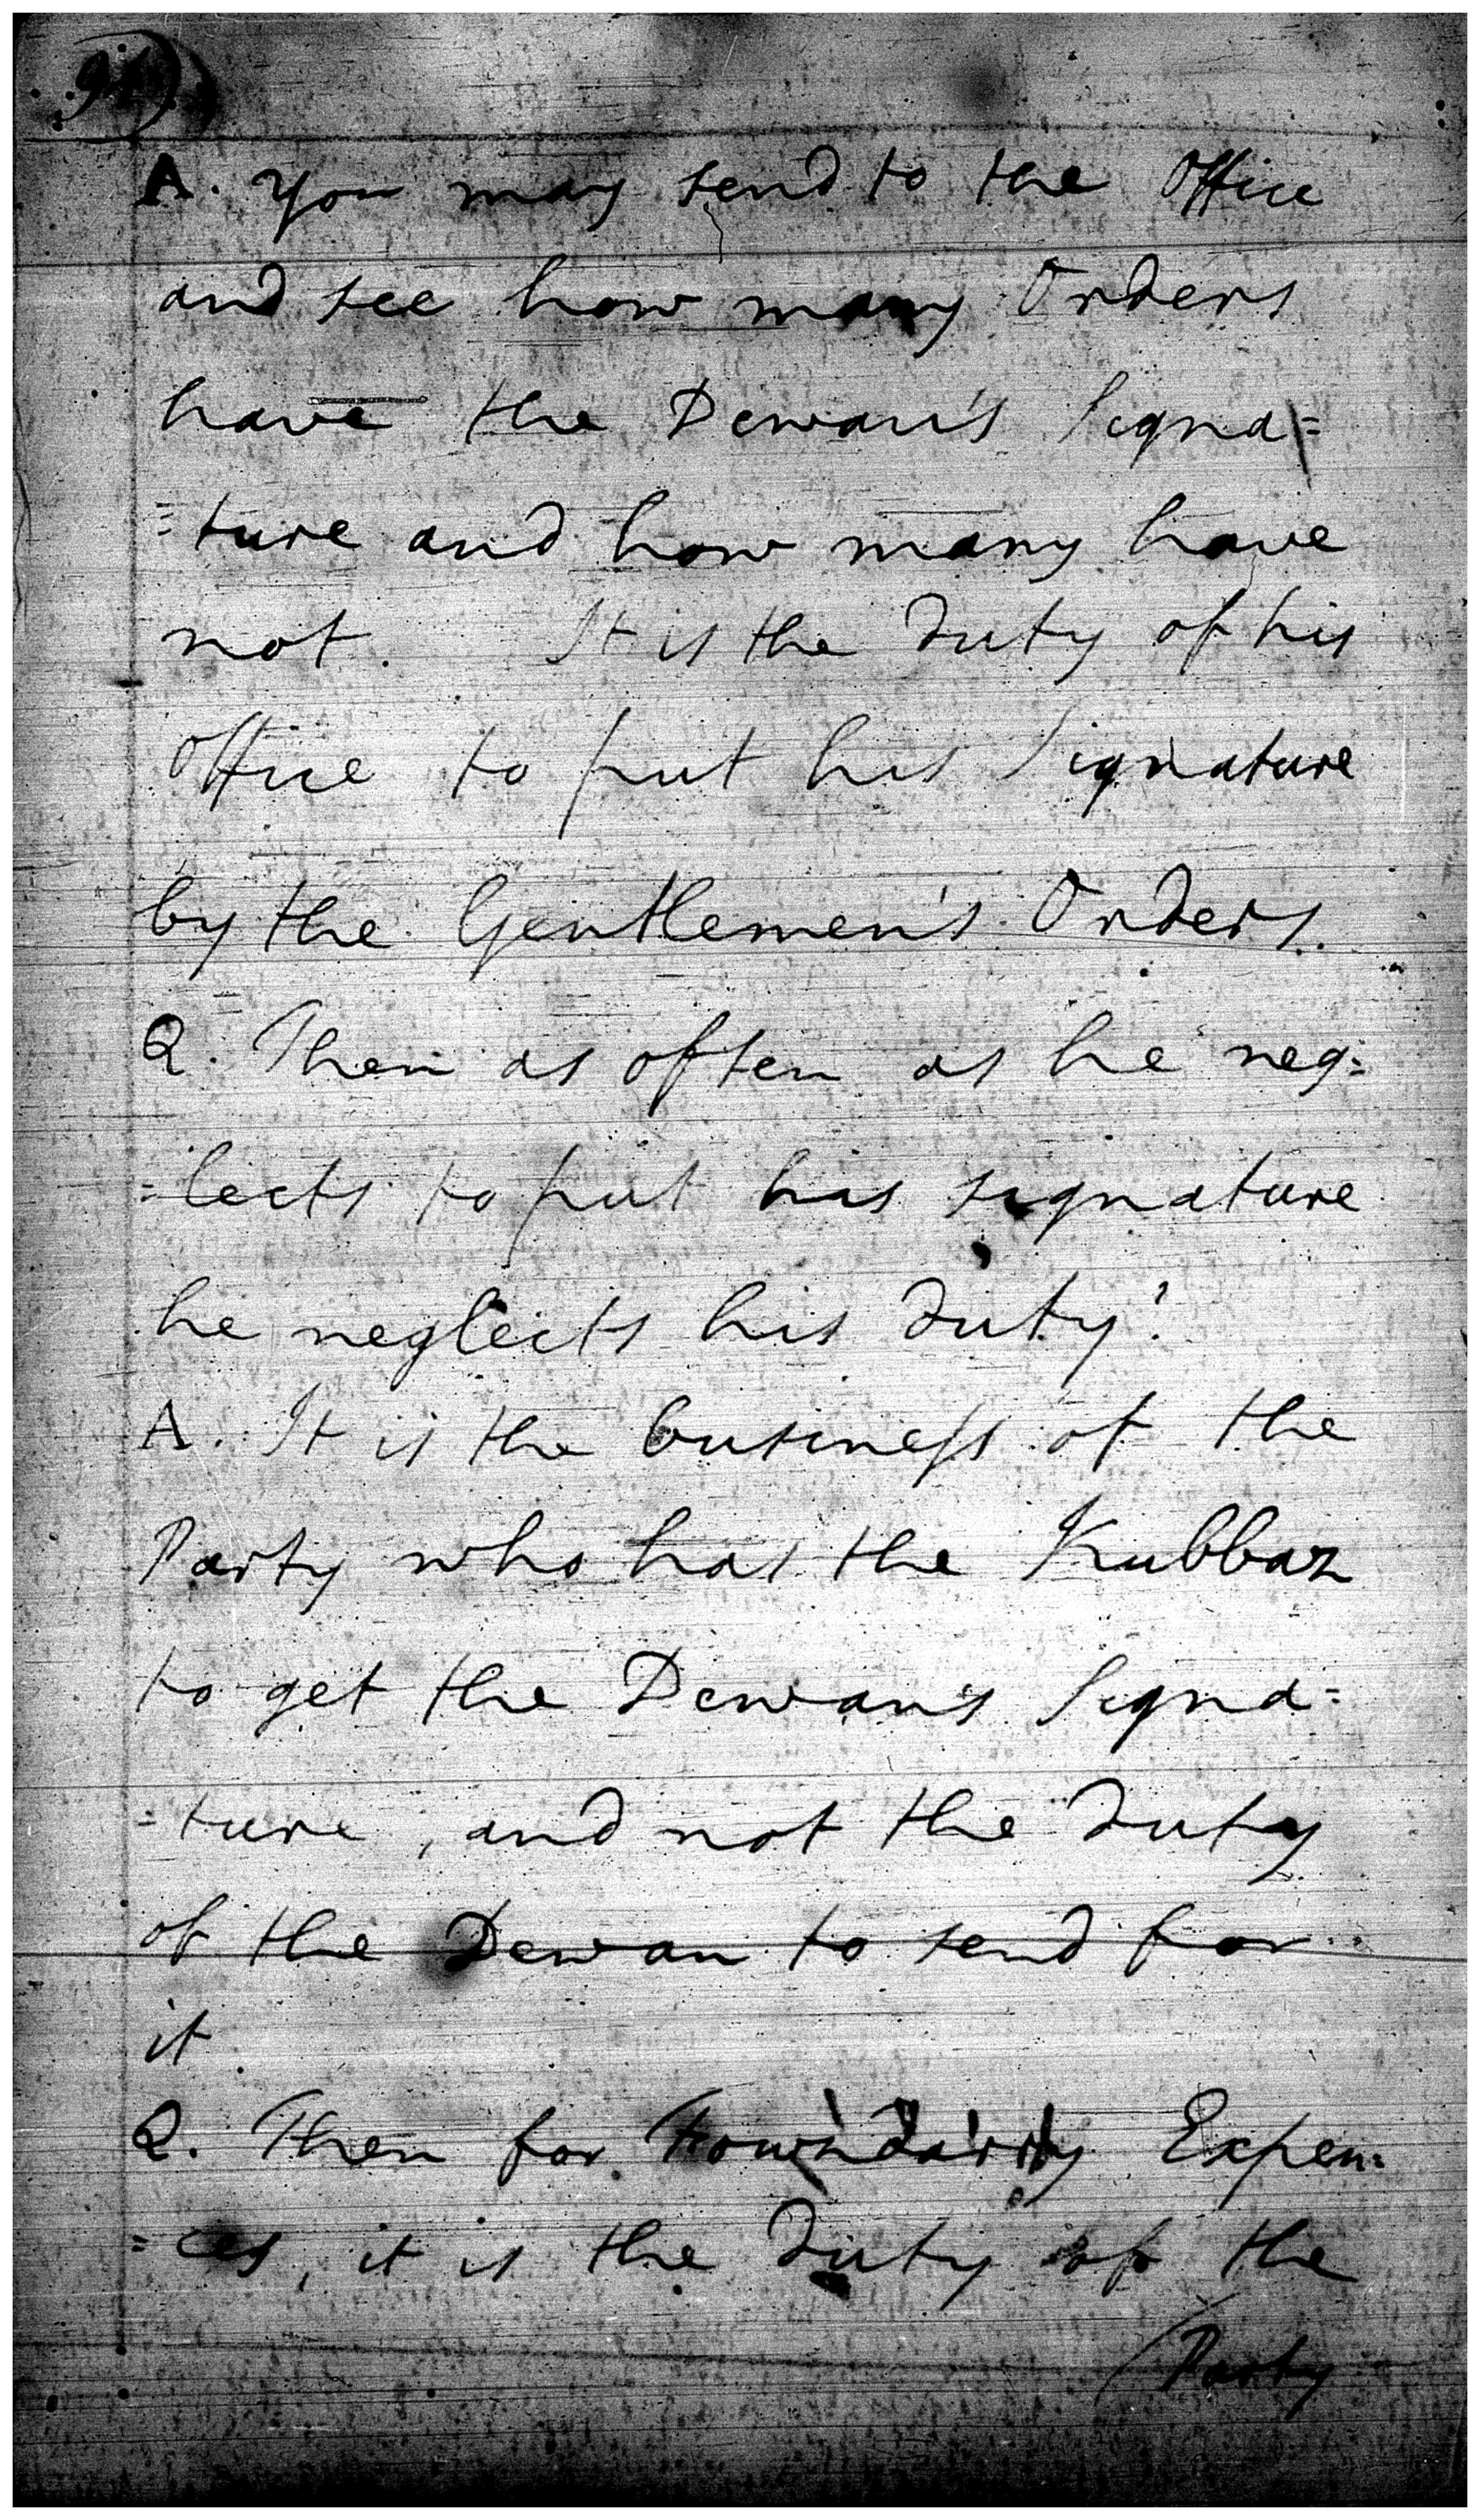 A. You may send to the Office
and see how many Orders
have the Dewan's Signa=
=ture and how many have
not. It is the Duty of his
Office to put his Signature
by the Gentlemen's Orders.
Q. Then as often as he neg=
=lects to put his signature
he neglects his Duty?
A. It is the business of the
Party who has the Kubbaz
to get the Dewan's Signa=
=ture, and not the Duty
of the Dewan to send for
it
Q. Then for Expen=
=ces, it is the Duty of the
Party